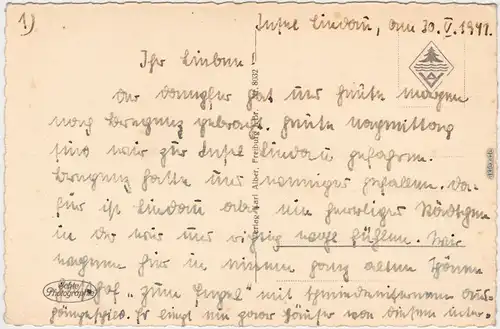 1)
Insel Lindau, am 30. V. 1941.
Ihr Lieben
Der Dampfer hat uns heute morgen
nach Bregenz gebracht. Heute nachmittag
sind wir zur Insel Lindau gefahren.
Bregenz hatte uns weniger gefallen. Da-
für ist Lindau aber ein herrliches Städtchen
in der wir uns richtig wohl fühlen. Wir
wohnen hier in einem ganz alten schönen
"zum Engel" mit schmiedeeisernem Aus-
hängeschild. Er liegt ein paar Häuser von
Verlag Karl Alber, Freiburg Nr. 8032
Echte Photographie